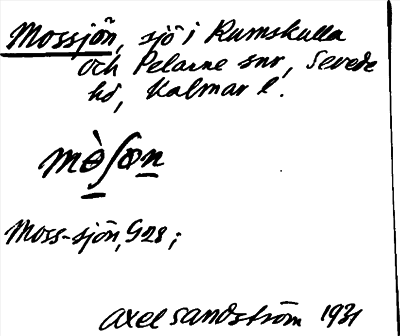 Mossjön, sjö i Rumskulla
och Pelarne snr, Sevede
hd, Kalmar l.
mòʃɵn
Moss-sjön, G28;
Axel Sandström 1931